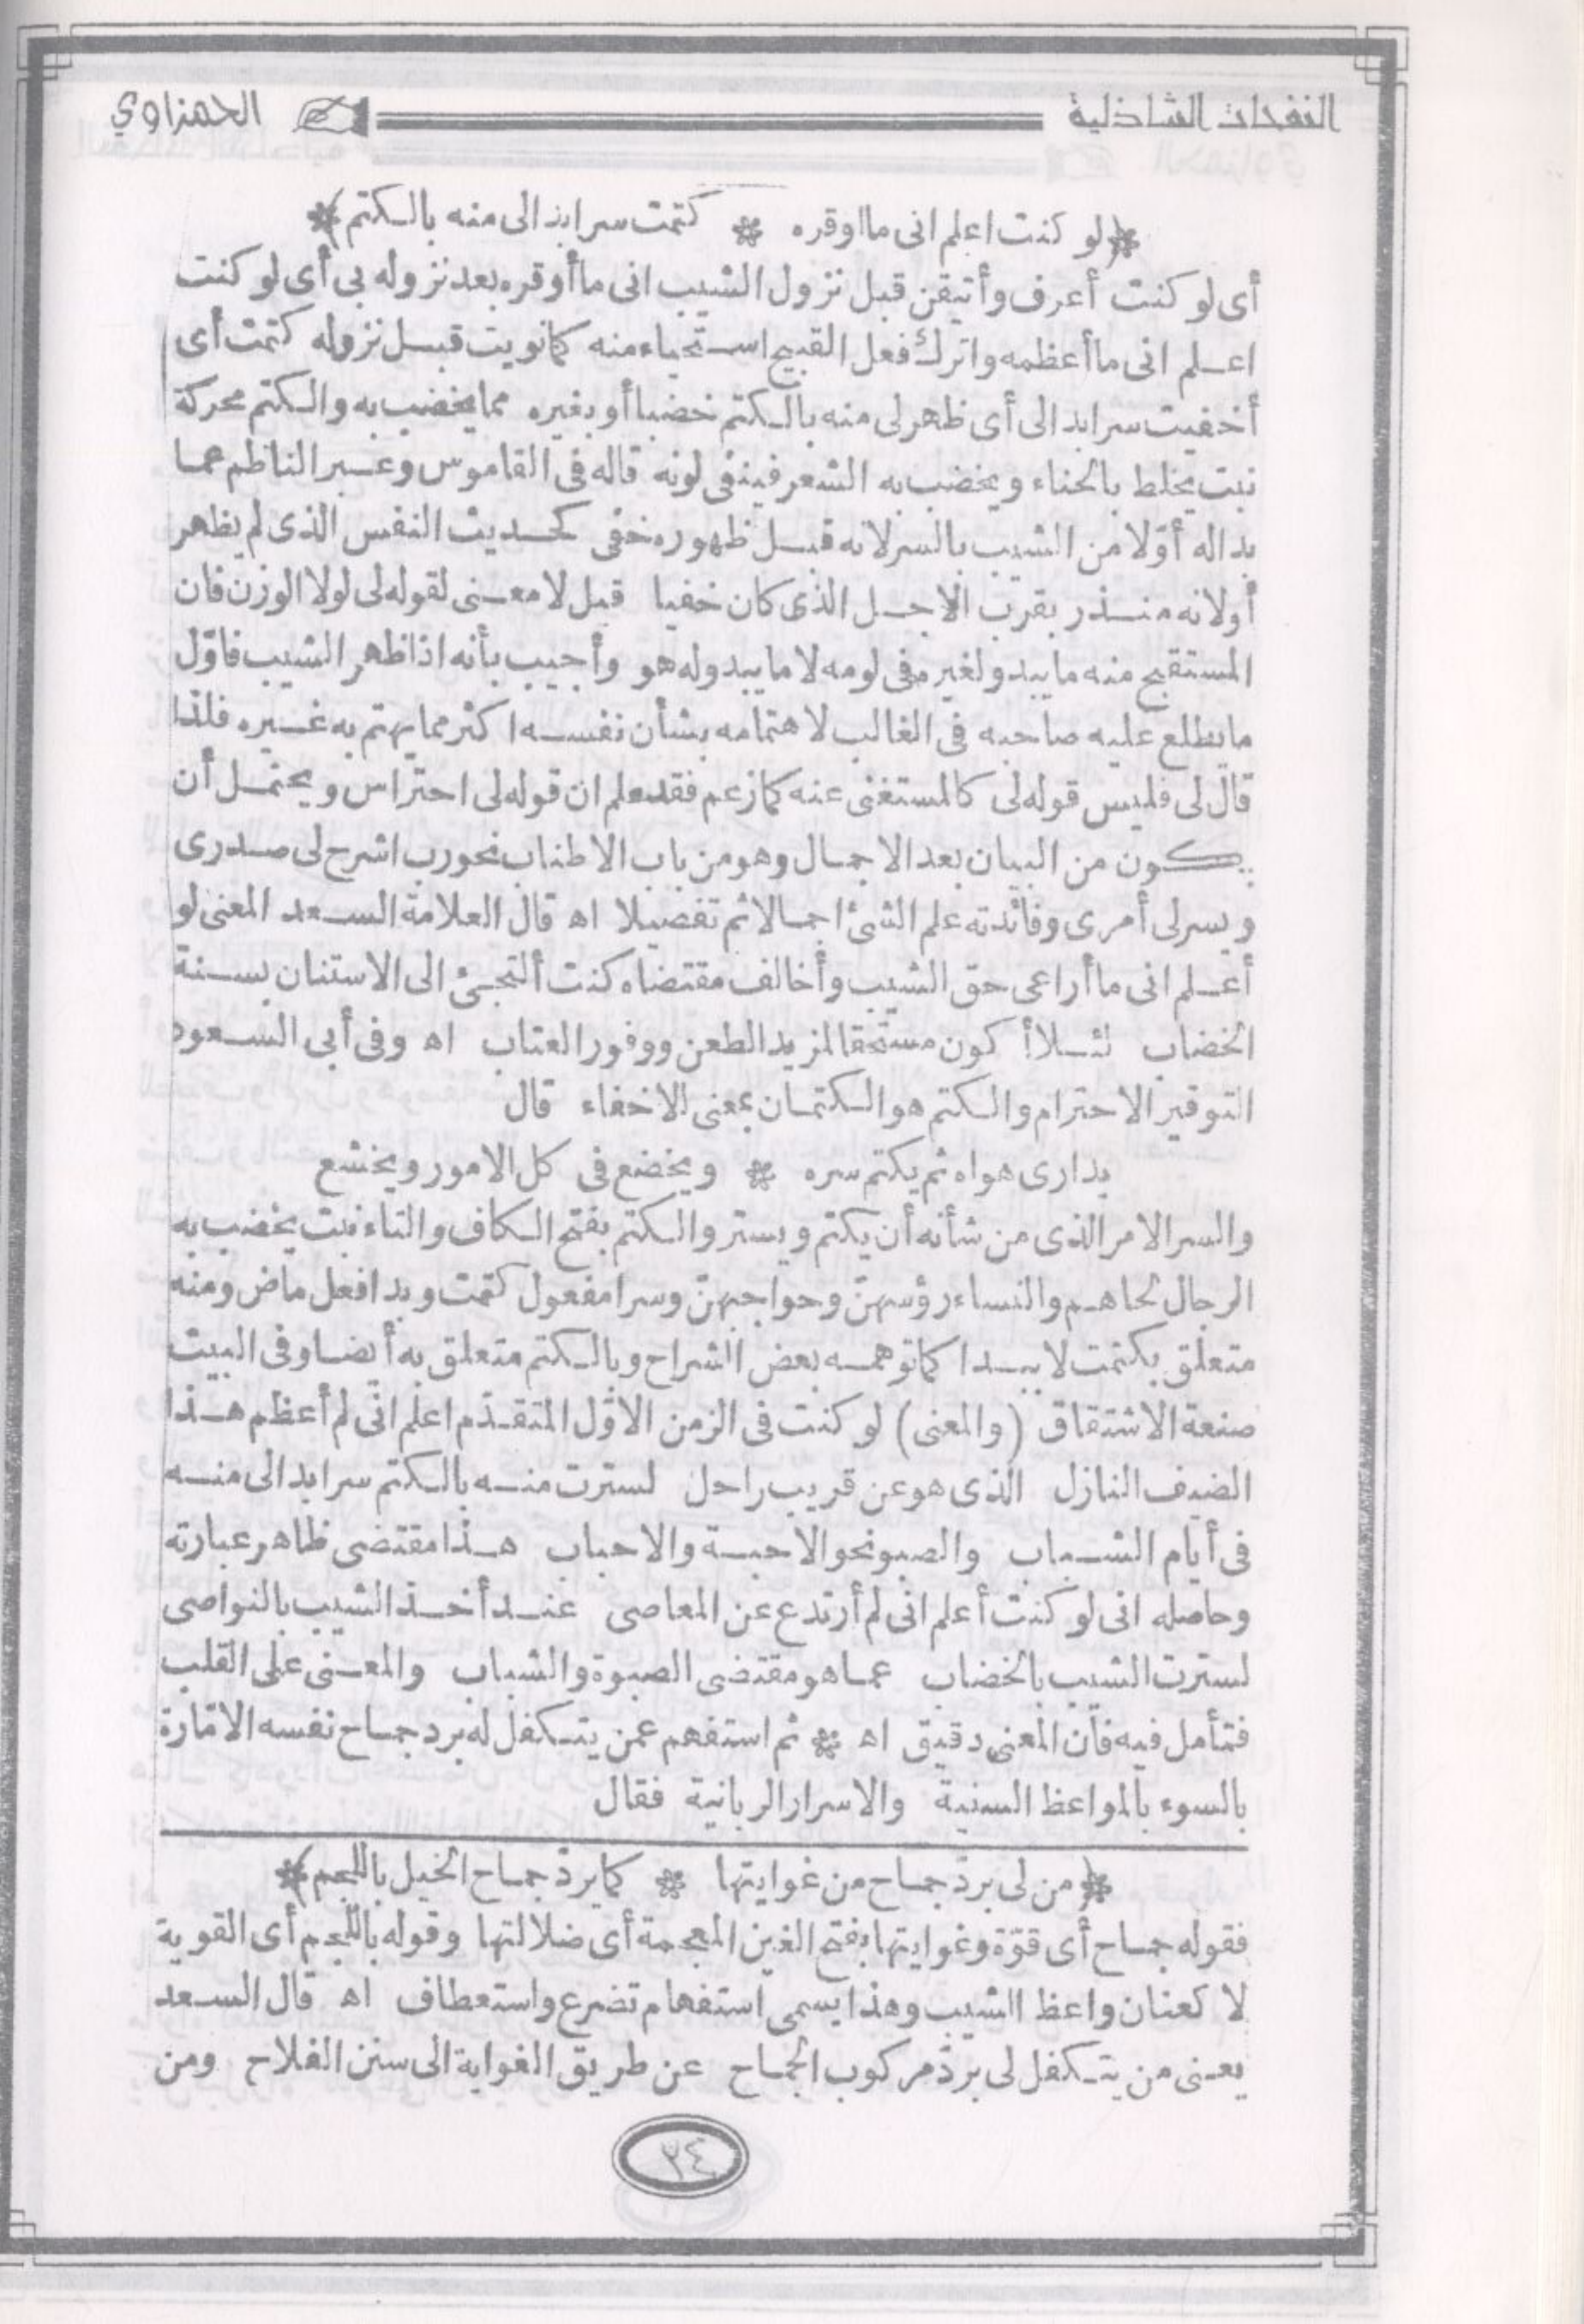 النفحات الشاذلية الحمزاوي
﴿لو كنت اعلم انى مااوقره * كتمت سرابدالى منه بالكتم﴾
أى لو كنت أعرف وأتيقن قبل نزول الشيب انى ماأوقره بعد نزوله بى أى لو كنت
اعلم انى ماأعظمه واترك فعل القبيح استحياء منه كمانويت قبل نزوله كتمت أى
أخفيت سرابدالى أى ظهرلى منه بالكتم خضبا أو بغيره مما يخضب به والكتم محركة
نبت يخلط بالحناء ويخضب به الشعر فينقى لونه قاله فى القاموس وعبر الناظم عما
بداله أوّلا من الشيب بالسر لانه قبل ظهوره خفى كحديث النفس الذى لم يظهر
أولانه منذر بقرب الاجل الذى كان خفيا قيل لا معنى لقوله لى لولا الوزن فان
المستقبح منه مايبدولغيره فى لومه لا مايبدوله هو وأجيب بأنه اذا ظهر الشيب فاوّل
مايطلع عليه صاحبه فى الغالب لاهتمامه بشأن نفسه اكثر مما يهتم به غيره فلذا
قال لى فليس قوله لى كالمستغنى عنه كمازعم فقدعلم ان قوله لى احتراس ويحتمل أن
يكون من البيان بعد الاجمال وهو من باب الاطناب نحورب اشرح لى صدرى
ويسرلى أمرى وفائدته علم الشئ اجمالا ثم تفصيلا اه قال العلامة السعد المعنى لو
أعلم انى ماأراعى حق الشيب وأخالف مقتضاه كنت ألتجئ الى الاستنان بسنة
الخضاب لئلا أكون مستحقا لمزيد الطعن ووفور العتاب اه وفى أبى السعود
التوقير الاحترام والكتم هو الكتمان بمعنى الاخفاء قال
يدارى هواه ثم يكتم سره * ويخضع فى كل الامور ويخشع
والسر الامر الذى من شأنه أن يكتم ويستر والكتم بفتح الكاف والتاء نبت يخضب به
الرجال لحاهم والنساء رؤسهنّ وحواجبهنّ وسرا مفعول كتمت وبدا فعل ماض ومنه
متعلق بكتمت لا ببدا كماتوهمه بعض الشراح وبالكتم متعلق به أيضا وفى البيت
صنعة الاشتقاق (والمعنى) لو كنت فى الزمن الاوّل المتقدّم اعلم انى لم أعظم هذا
الضيف النازل الذى هو عن قريب راحل لسترت منه بالكتم سرابدالى منه
فى أيام الشباب والصبو نحو الاحبة والاحباب هذا مقتضى ظاهر عبارته
وحاصله انى لو كنت أعلم انى لم أرتدع عن المعاصى عند أخذ الشيب بالنواصى
لسترت الشيب بالخضاب عماهو مقتضى الصبوة والشباب والمعنى على القلب
فتأمل فيه فان المعنى دقيق اه * ثم استفهم عمن يتكفل له برد جماح نفسه الامّارة
بالسوء بالمواعظ السنية والاسرار الربانية فقال
﴿من لى بردّ جماح من غوايتها * كمايردّ جماح الخيل باللجم﴾
فقوله جماح أى قوّة وغوايتها بفتح الغين المعجمة أى ضلالتها وقوله باللجم أى القوية
لا كعنان واعظ الشيب وهذا يسمى استفهام تضرع واستعطاف اه قال السعد
يعنى من يتكفل لى بردّ مركوب الجماح عن طريق الغواية الى سنن الفلاح ومن
٣٤